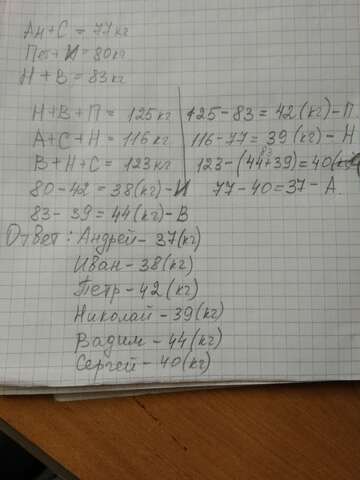 Ан+С = 77кг
Пет+И = 80кг
Н + В = 83кг
Н+В+П = 125кг
125-83 = 42(кг)-П
А+С+Н = 116кг
116-77 = 39(кг)-Н
В+Н+С = 123кг
83
123-(44+39) = 40(кг)
80-42 = 38(кг)-И
77-40 = 37-А.
83-39 = 44(кг)-В
Ответ: Андрей - 37(кг)
Иван - 38(кг)
Петр - 42(кг)
Николай - 39(кг)
Вадим - 44(кг)
Сергей - 40(кг)